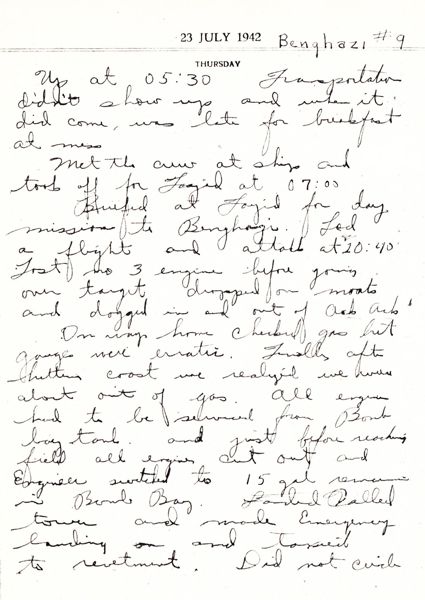 23 JULY 1942 Benghazi #9
THURSDAY
Up at 05:30 Transportation
didn't show up and when it
did come, was late for breakfast
at mess
Met the crew at ships and
took off for Fayid at 07:00
Briefed at Fayid for day
mission to Benghazi. Led
a flight and attack at 20:40
Lost no 3 engine before going
over target dropped on
and dogged in and out of ack ack
On way home checked gas but
gauges were erratic. Finally after
hitting coast we realized we were
about out of gas. All engines
had to be serviced from Bomb
bay tank. and just before reaching
field all engines cut out and
Engineer switched to 15 gal
in Bomb Bay. Landed Called
tower and made Emergency
landing and taxied
to revetment. Did not circle